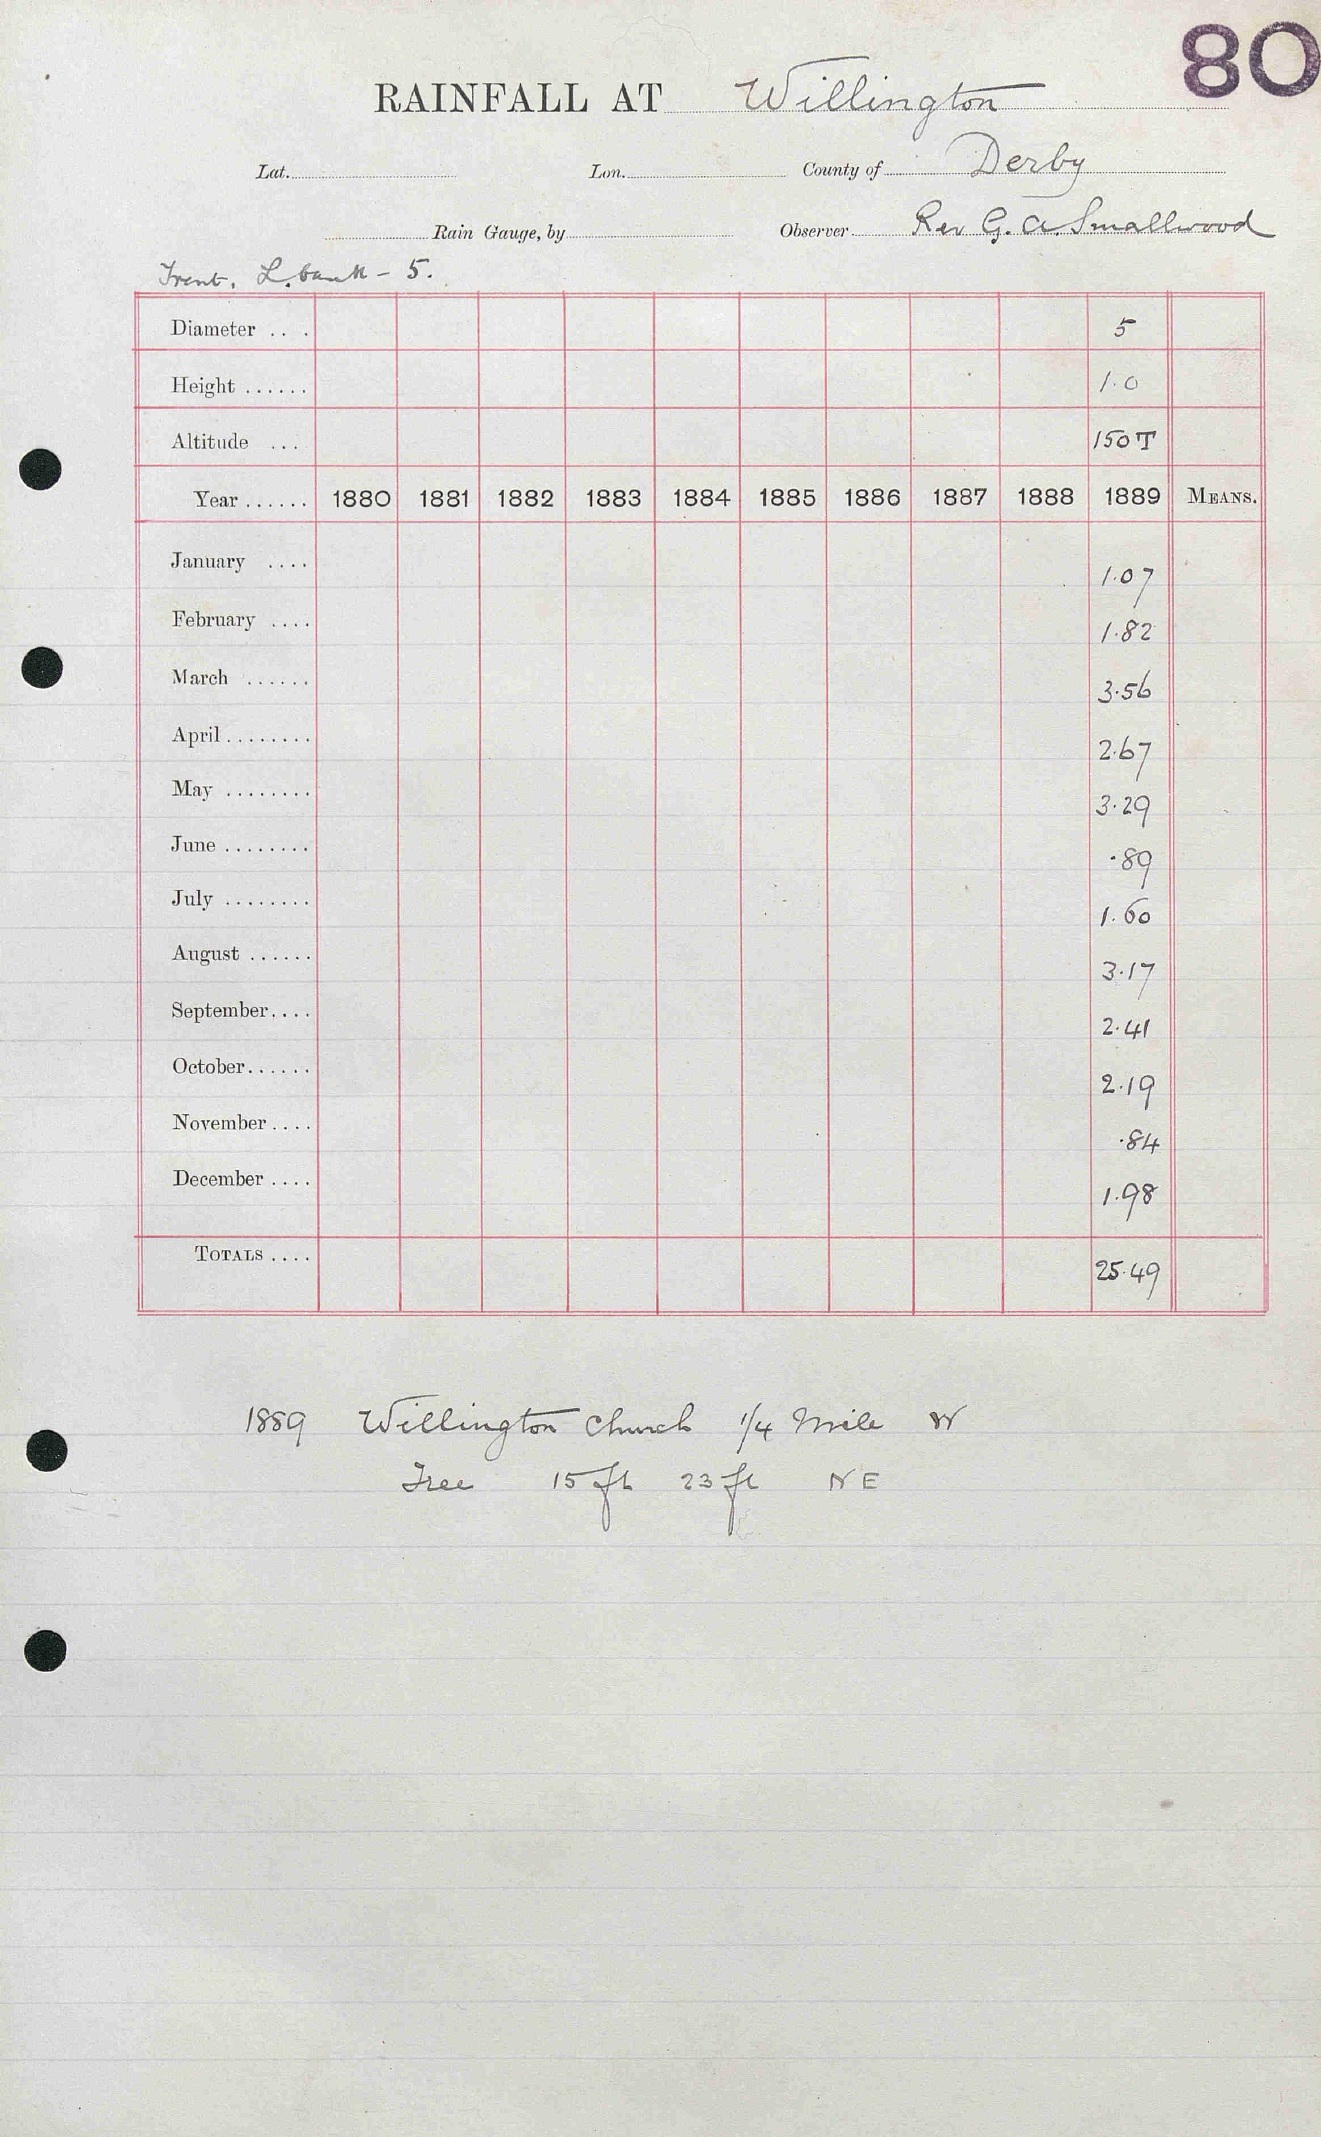 80
RAINFALL AT Willington
Lat. Lon. County of Derby
Rain Gauge, by Observer Rev G. A. Smallwood
Trent. L. bank - 5.
Diameter ... 5
Height ...... 1.0
Altitude ... 150 T
Year ...... 1880 1881 1882 1883 1884 1885 1886 1887 1888 1889 MEANS.
January .... 1.07
February .... 1.82
March ...... 3.56
April ........ 2.67
May ........ 3.29
June ........ .89
July ........ 1.60
August ...... 3.17
September.... 2.41
October...... 2.19
November .... .84
December .... 1.98
TOTALS .... 25.49
1889 Willington Church 1/4 Mile W
Tree 15 ft 23 ft NE